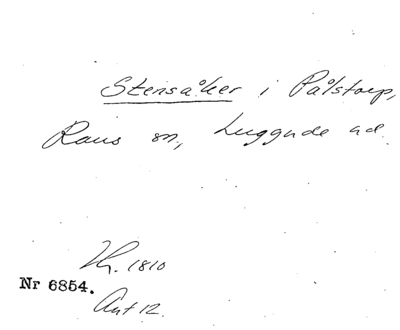 Stensåker i Pålstorp,
Raus sn, Luggude hd.
Hz. 1810
Nr 6854.
Ant 12.